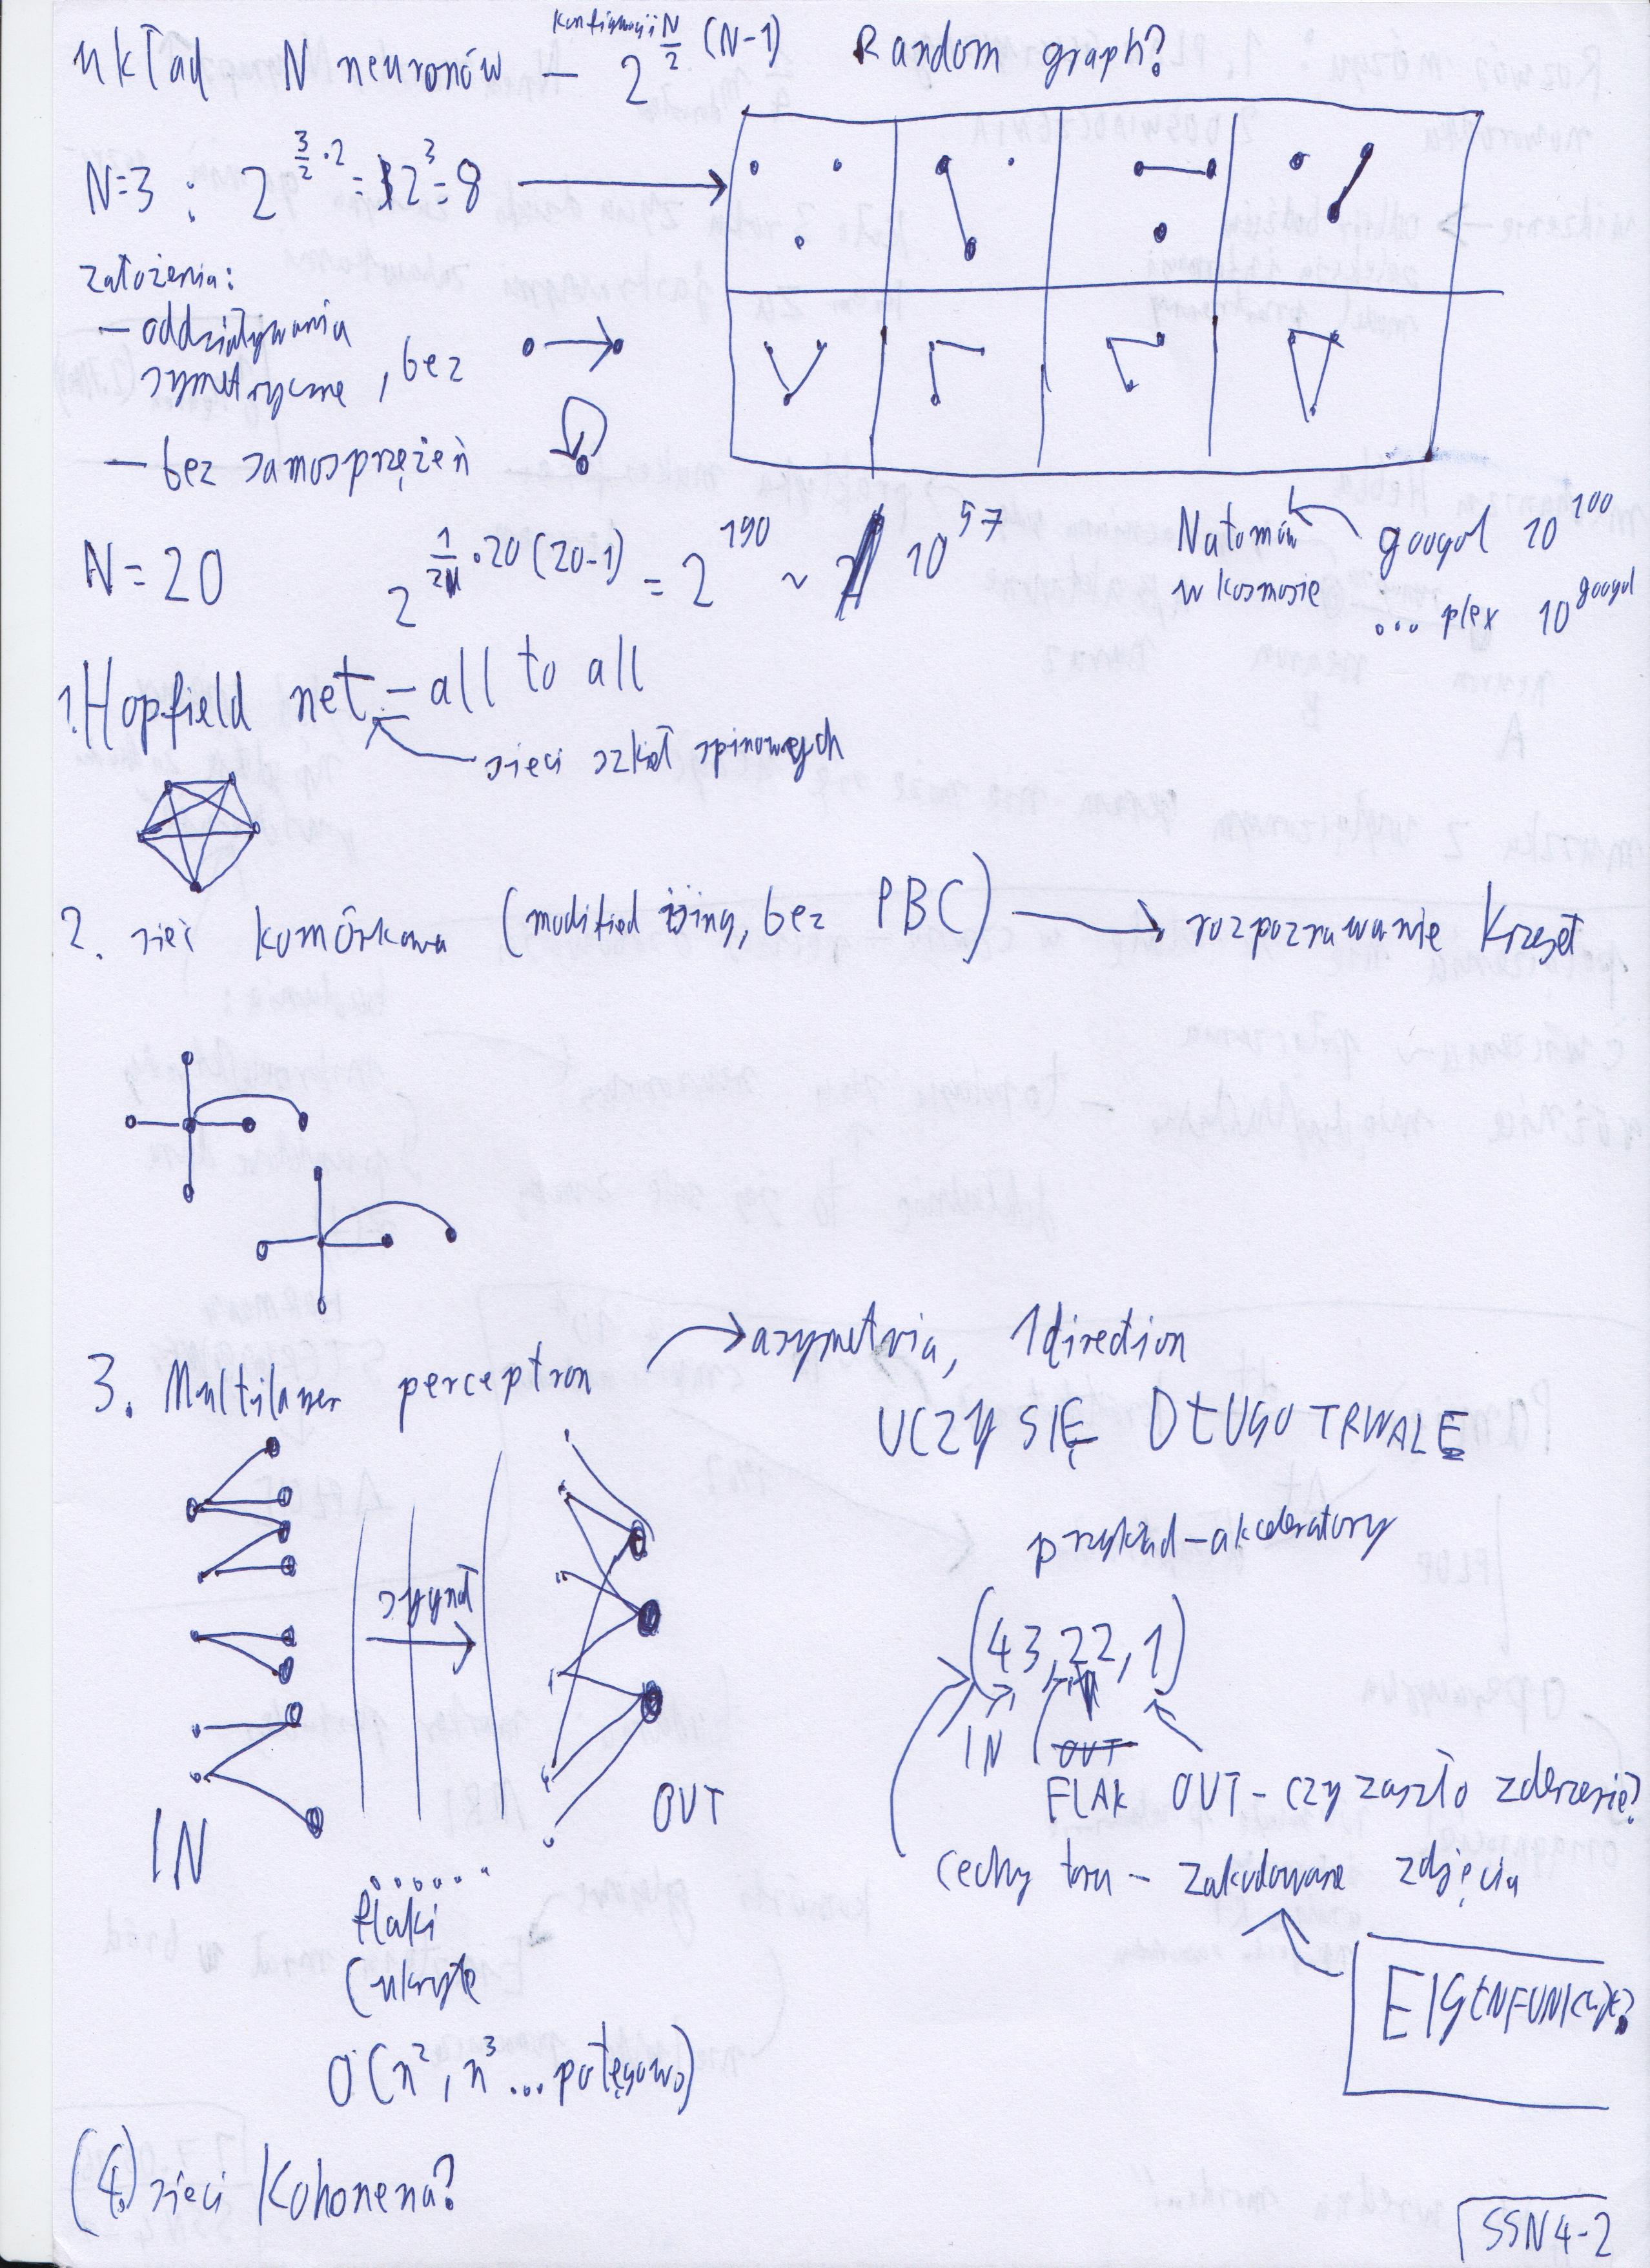 układ N neuronów – 2^{N/2 (N-1)} konfiguracji Random graph?
N=3 : 2^{3/2 · 2} = 2^3 = 8
założenia:
– oddziaływania
symetryczne, bez
– bez samosprzężeń
N = 20 2^{1/2 · 20(20-1)} = 2^{190} ~ 10^{57}
N atomów googol 10^{100}
w kosmosie ... plex 10^{googol}
1. Hopfield net – all to all
sieci szkieł spinowych
2. sieć komórkowa (modified ising, bez PBC) → rozpoznawanie krzeseł
3. Multilayer perceptron → asymetria, 1 direction
UCZY SIĘ DŁUGOTRWALE
przykład – akceleratory
sygnał
(43, 22, 1)
IN OUT
FLAK OUT – czy zaszło zderzenie?
IN OUT
cechy toru – zakodowane zdjęcia
flaki
(ukryte
EIGENFUNKCJE?
O(n^2, n^3 ... potęgowo)
(4.) sieci Kohonena?
SSN 4-2